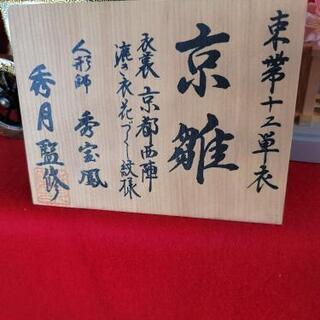 束帯十二単衣
京雛
衣裳 京都西陣
漉き衣花づくし紋様
人形師 秀宝鳳
秀月監修